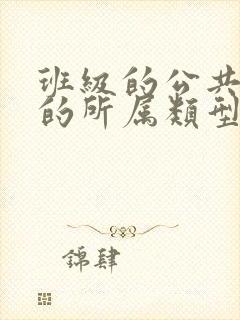 班級的公共
的所属類型
錦肆